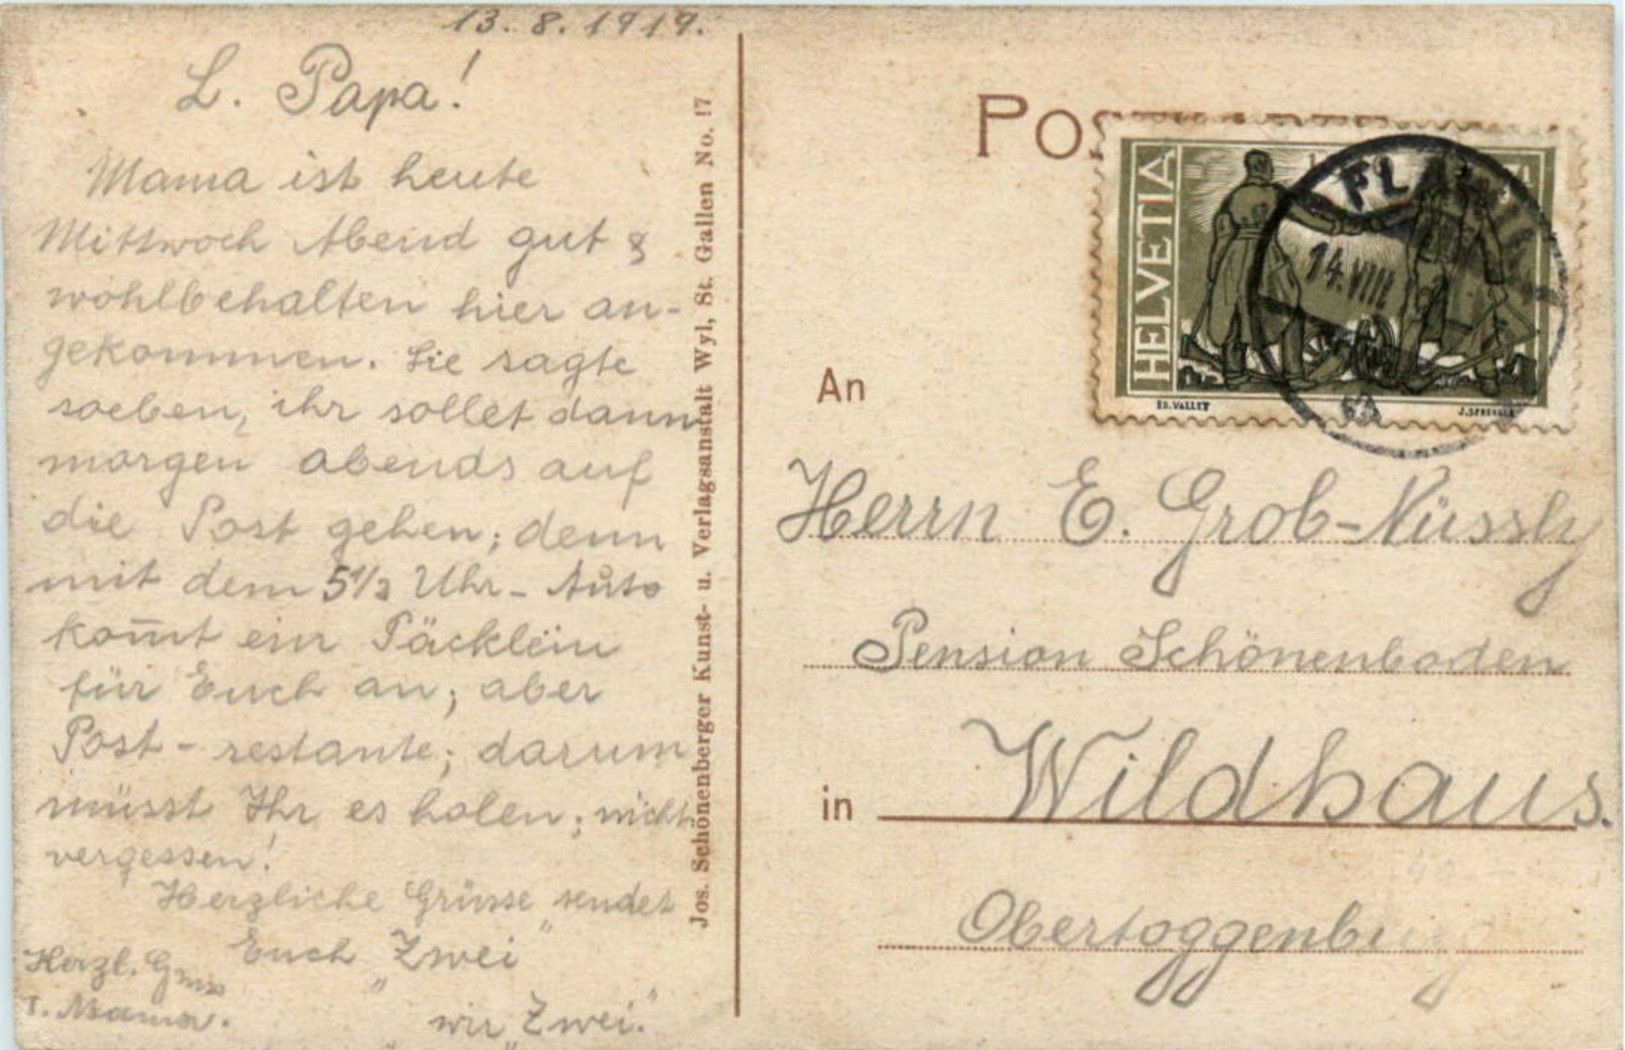 13. 8. 1919.
L. Papa!
Mama ist heute
Mittwoch Abend gut &
wohlbehalten hier an-
gekommen. Sie sagte
soeben, ihr sollet dann
morgen abends auf
die Post gehen; denn
mit dem 5 1/2 Uhr - Auto
kom̄t ein Päcklein
für Euch an; aber
Post - restante; darum
müsst Ihr es holen; nicht
vergessen!
Herzliche Grüsse sendet
Euch „Zwei"
wir „Zwei."
Herzl. Gruss
v. Mama.
Jos. Schönenberger Kunst- u. Verlagsanstalt Wyl, St. Gallen No. 17
Pos
HELVETIA
FLAWIL
14.VIII
ED. VALLET
An
Herrn E. Grob-Nüssly
Pension Schönenboden
in Wildhaus.
Obertoggenburg